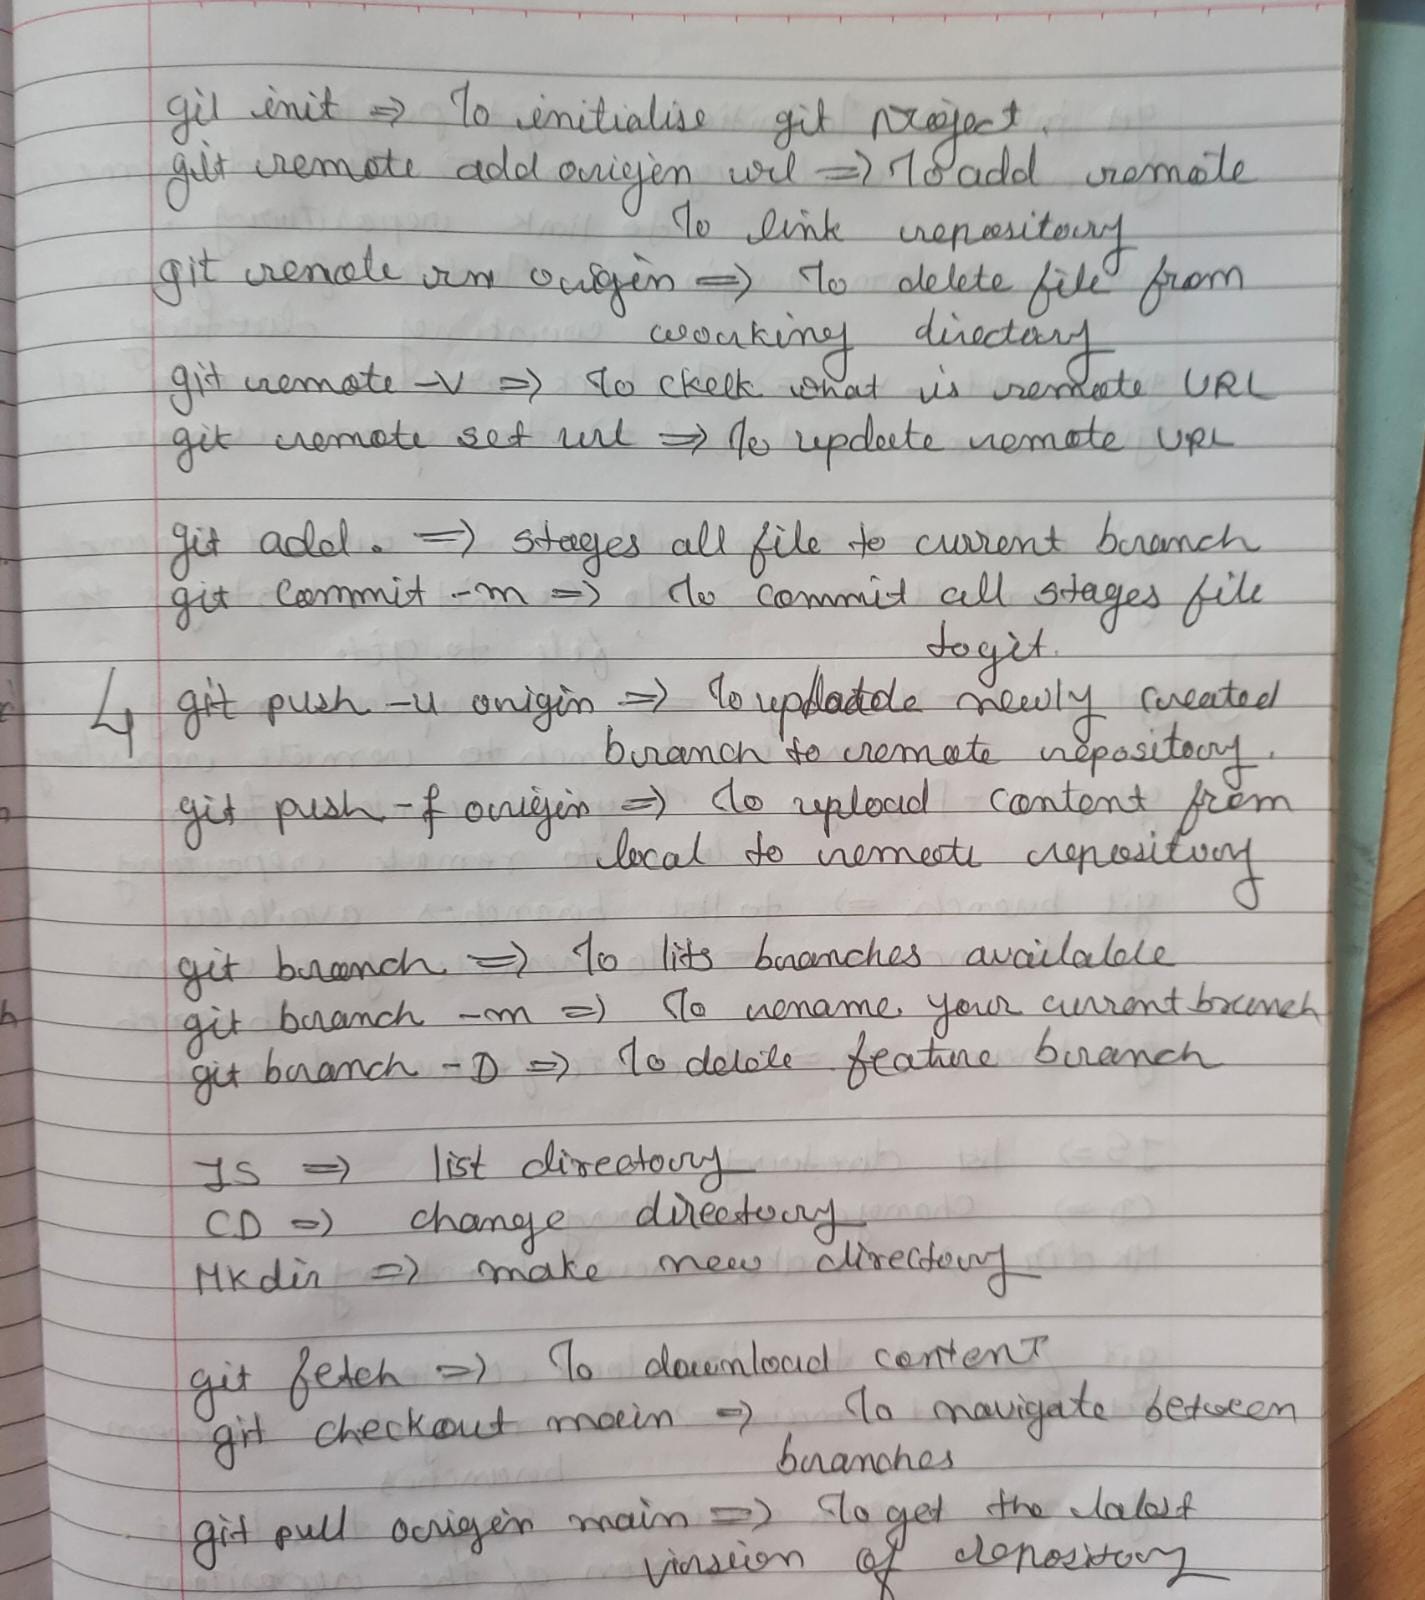 git init => To initialise git project.
git remote add origin url => To add remote
To link repository
git remote rm origin => To delete file from
working directory
git remote -v => To ckeck what is remote URL
git remote set url => To update remote URL
git add . => stages all file to current branch
git commit -m => To commit all stages file
to git.
4 git push -u origin => To newly created
branch to remote repository.
git push -f origin => To upload content from
local to remote repository
git branch => To lits branches available
git branch -m => To rename your current branch
git branch -D => To delete feature branch
IS => list directory
CD => change directory
Mkdir => make new directory
git fetch => To download content
git checkout main => To navigate between
branches
git pull origin main => To get the latest
of